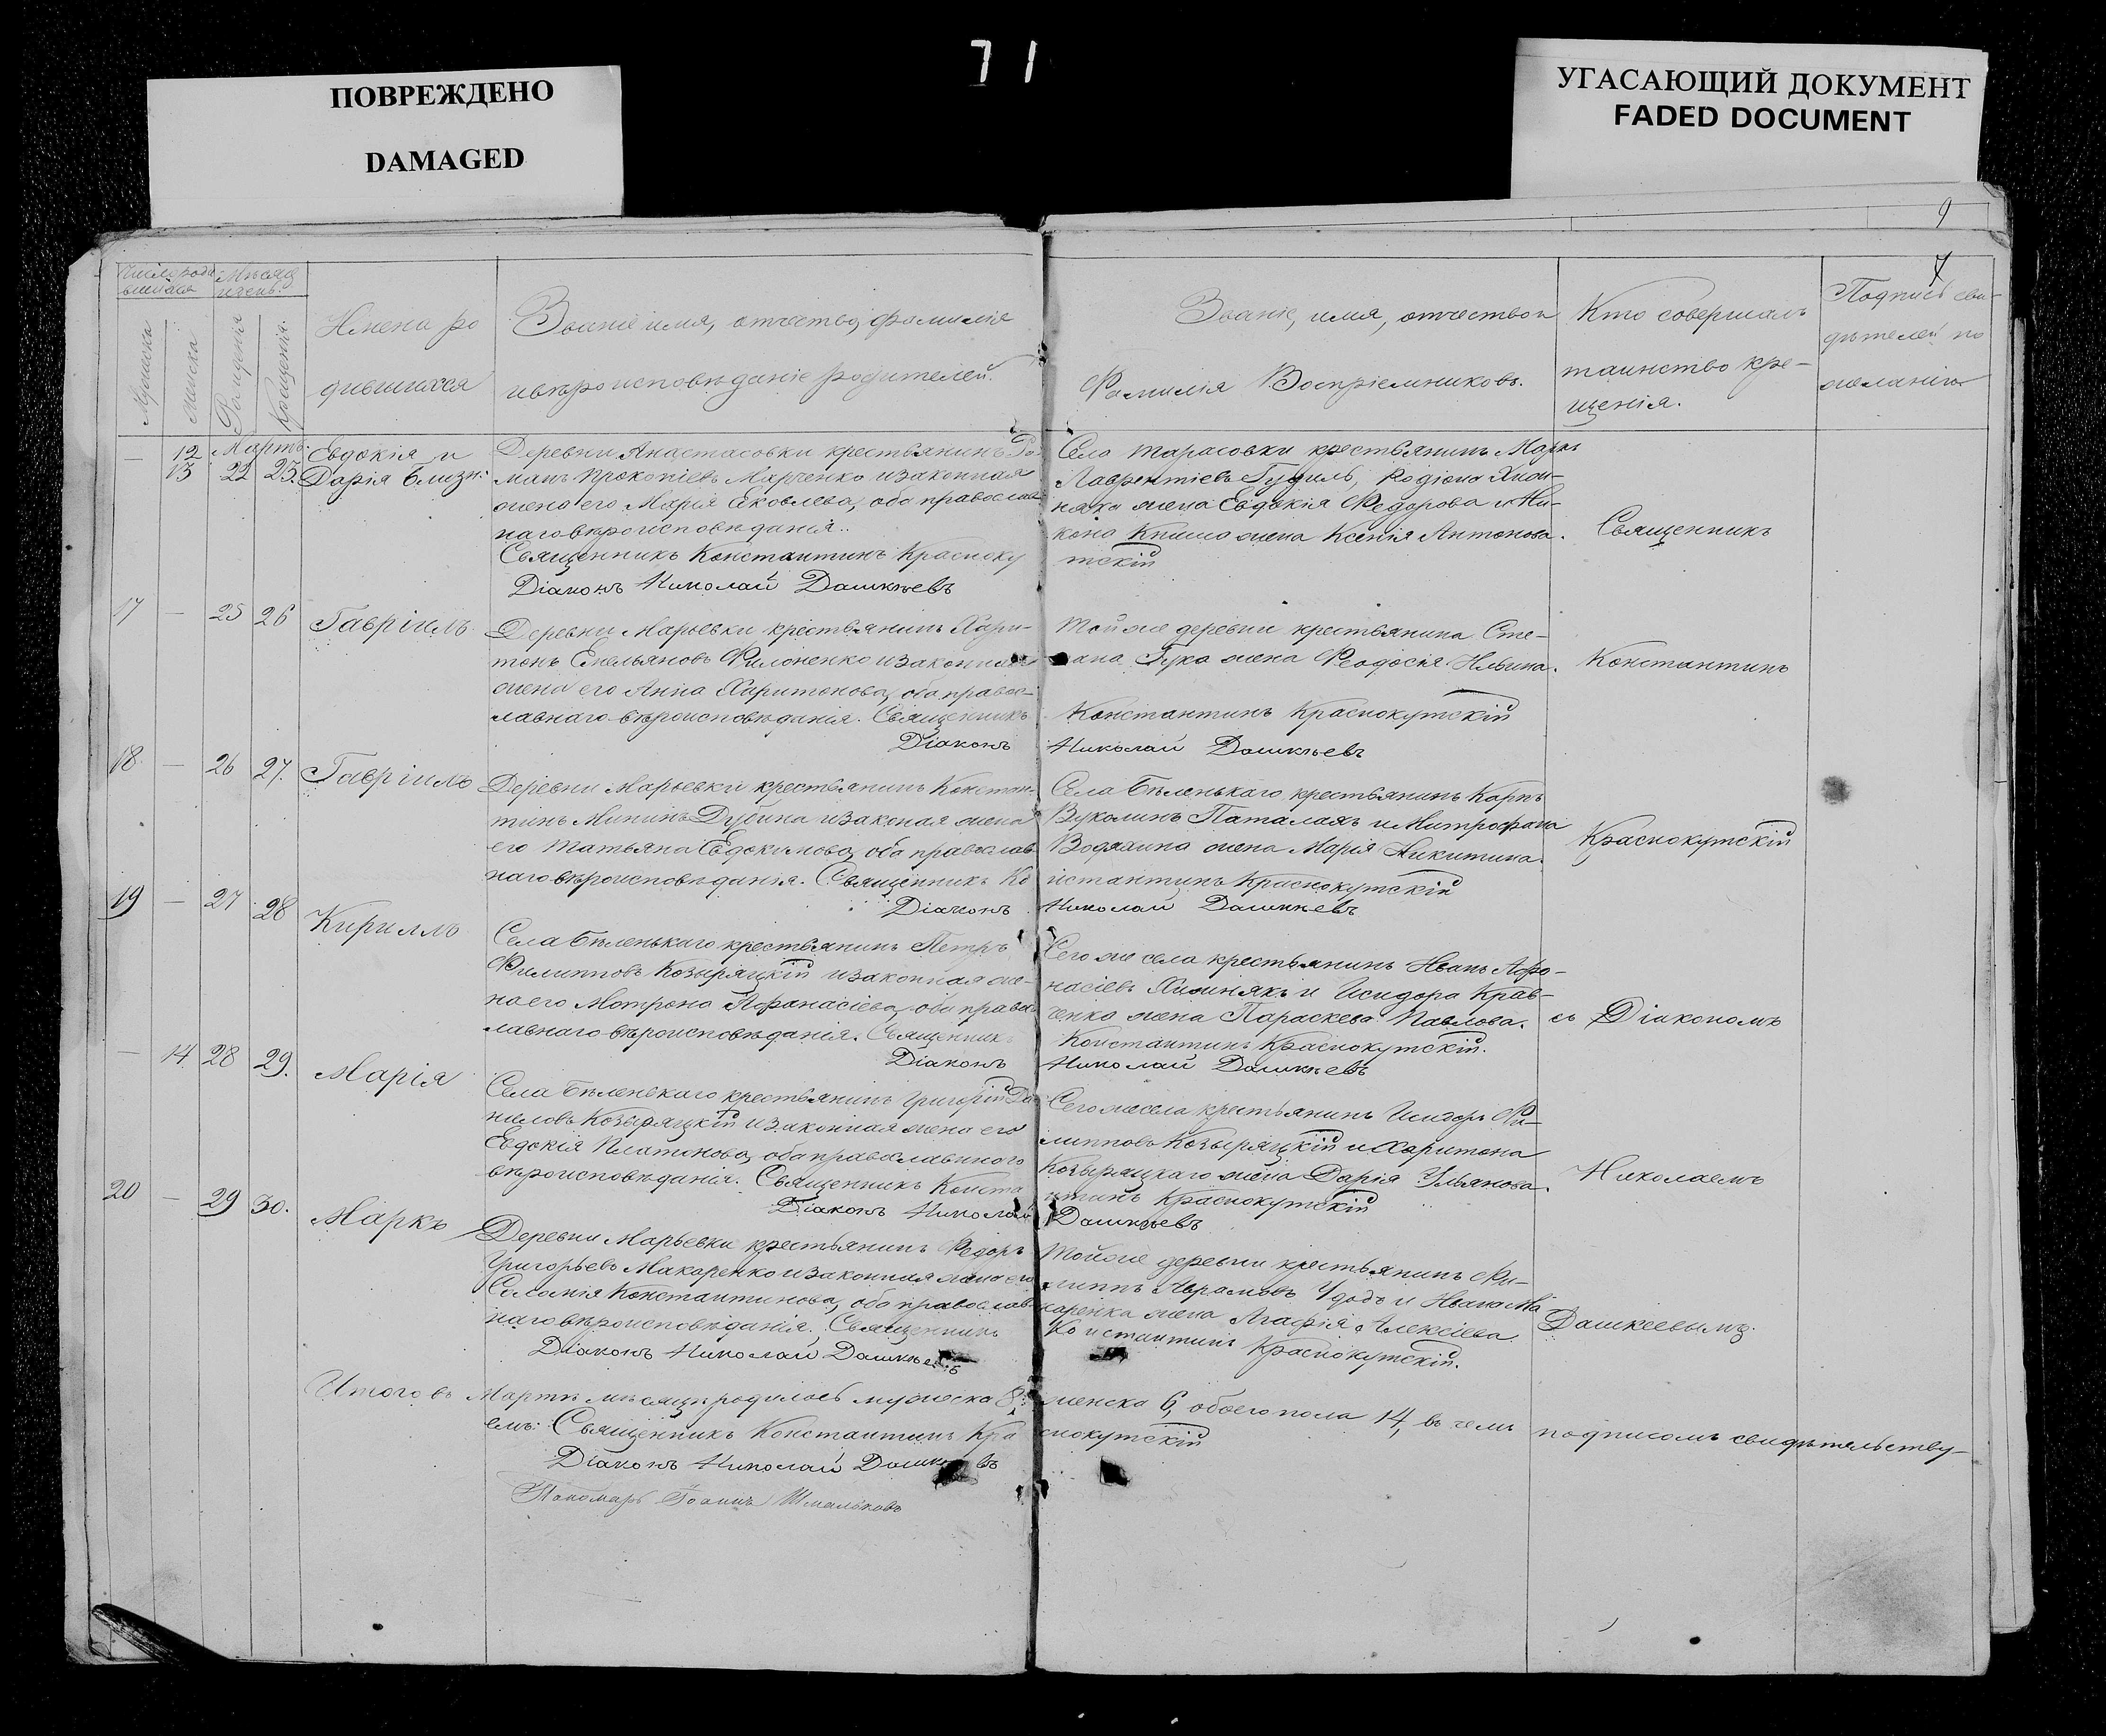 71
ПОВРЕЖДЕНО
DAMAGED
УГАСАЮЩИЙ ДОКУМЕНТ
FADED DOCUMENT
9
7
Число роди
вшихся
Мѣсяцъ
и день.
Мужска
Женска
Рожденія
Крещенія.
Имена ро
дившихся
Званіе имя, отчество, фамиліе
и вѣроисповѣданіе родителей.
Званіе, имя, отчество и
Фамилія Воспріемниковъ.
Кто совершалъ
таинство кре-
щенія.
Подпись сви-
дѣтелей по
желанію
— 12 Мартъ. Евдокія и
13 22 23. Дарія близн:
Деревни Анастасовки крестьянинъ Ро
манъ Прокопіевъ Марченко и законная
жена его Марія Яковлева, оба православ
наго вѣроисповѣданія.
Священникъ Константинъ Красноку
Діаконъ Николай Дашкѣевъ
Село Тарасовки крестьянинъ Маркъ
Лаврентіевъ Гудиль, Родіона Хиж-
няка жена Евдокія Федорова и Ни-
кона Книша жена Ксенія Антонова.
тскій
17 — 25 26 Гавріилъ
Деревни Марьевки крестьянинъ Хари-
тонъ Емельяновъ Филоненко и законная
жена его Анна Харитонова, оба правос-
лавнаго вѣроисповѣданія. Священникъ
Діаконъ
Той же деревни крестьянина Сте-
пана Гука жена Феодосія Ильина.
Константинъ Краснокутскій
Николай Дашкѣевъ
18. — 26 27. Гавріилъ
Деревни Марьевки крестьянинъ Констан-
тинъ Мининъ Дубина и законая жена
его Татьяна Евдокимова, оба православ
наго вѣроисповѣданія. Священникъ Ко
Діаконъ
Села Бѣленькаго крестьянинъ Карпъ
Вуколинъ Паталахъ и Митрофана
Водяхина жена Марія Никитина.
нстантинъ Краснокутскій
Николай Дашкѣевъ
19 — 27 28 Кириллъ
Села Бѣленькаго крестьянинъ Петръ
Филипповъ Козыряцкій и законная же-
на его Матрона Афанасіева, оба правос
лавнаго вѣроисповѣданія. Священникъ
Діаконъ
Сего же села крестьянинъ Иванъ Афо-
насіевъ Хижнякъ и Исидора Крав-
ченко жена Параскева Павлова.
Константинъ Краснокутскій.
Николай Дашкѣевъ
— 14 28 29. Марія
Села Бѣленькаго крестьянинъ Григорій Да
ниловъ Козыряцкій и законная жена его
Евдокія Платонова, оба православнаго
вѣроисповѣданія. Священникъ Конста
Діаконъ Николай
Сего же села крестьянинъ Исидоръ Фи-
липповъ Козыряцкій и Харитона
Козыряцкаго жена Дарія Ульянова.
нтинъ Краснокутскій
Дашкѣевъ
20 — 29 30. Маркъ
Деревни Марьевки крестьянинъ Федоръ
Григорьевъ Макаренко и законная жена его
Саломія Константинова, оба православ-
наго вѣроисповѣданія. Священникъ
Діаконъ Николай Дашкѣевъ
Той же деревни крестьянинъ Фи-
липпъ Абрамовъ Удодъ и Ивана Ма
каренка жена Агафія Алексіева
Константинъ Краснокутскій.
Священникъ
Константинъ
Краснокутскій
съ Діакономъ
Николаемъ
Дашкеевымъ.
Итого въ Мартѣ мѣсяцѣ родилось мужеска 8: женска 6, обоего пола 14, въ чемъ подписомъ свидѣтельству-
емъ: Священникъ Константинъ Кра снокутскій
Діаконъ Николай Дашкѣевъ
Пономарь Іоаннъ Шмальковъ